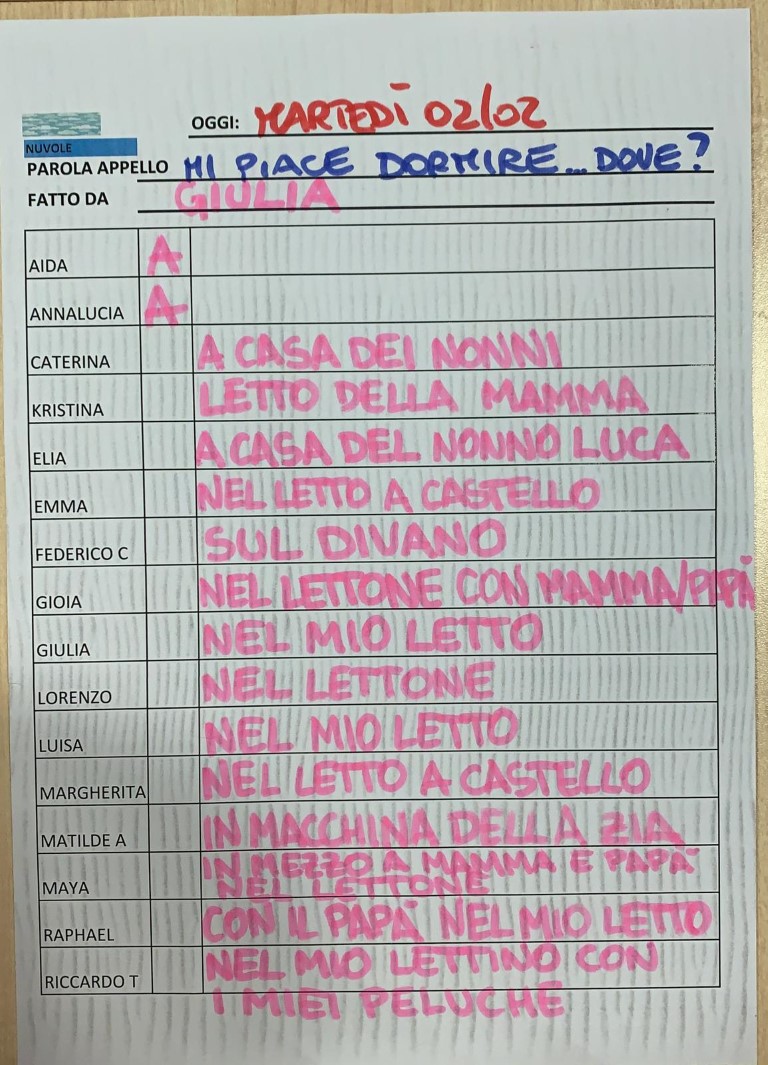 OGGI: MARTEDÌ 02/02
NUVOLE
PAROLA APPELLO MI PIACE DORMIRE... DOVE?
FATTO DA GIULIA
AIDA A
ANNALUCIA A
CATERINA A CASA DEI NONNI
KRISTINA LETTO DELLA MAMMA
ELIA A CASA DEL NONNO LUCA
EMMA NEL LETTO A CASTELLO
FEDERICO C SUL DIVANO
GIOIA NEL LETTONE CON MAMMA/PAPÀ
GIULIA NEL MIO LETTO
LORENZO NEL LETTONE
LUISA NEL MIO LETTO
MARGHERITA NEL LETTO A CASTELLO
MATILDE A IN MACCHINA DELLA ZIA
MAYA IN MEZZO A MAMMA E PAPÀ
NEL LETTONE
RAPHAEL CON IL PAPÀ NEL MIO LETTO
RICCARDO T NEL MIO LETTINO CON
I MIEI PELUCHE